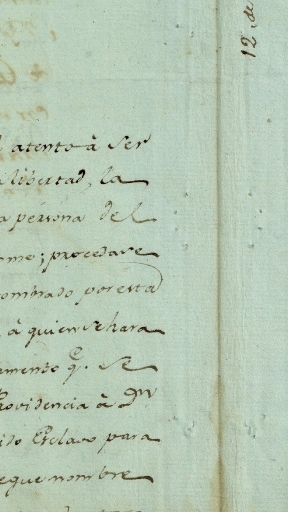 atento à ser
libertad, la
persona del
me; procedase
ombrado por esta
à quien se hara
amento q.e se
Providencia à Dn
ido Esclavo para
que nombre
12. de